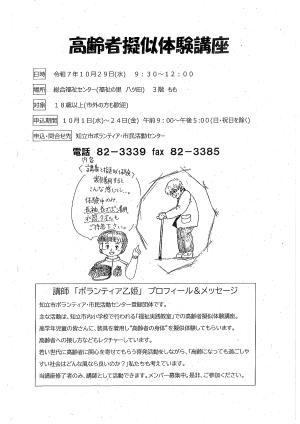 高齢者擬似体験講座
日時 令和7年10月29日(水) 9:30~12:00
場所 総合福祉センター(福祉の里 八ツ田) 3階 もも
対象 18歳以上(市外の方も歓迎)
申込期間 10月1日(水)~24日(金) 午前9:00~午後5:00(日・祝日を除く)
申込・問合せ先 知立市ボランティア・市民活動センター
電話 82-3339 fax 82-3385
内容
講義と擬似体験
こんな感じに…
体験中のみ
長袖 長ズボン着用
ご持参下さい
講師 「ボランティア乙姫」 プロフィール&メッセージ
知立市ボランティア・市民活動センター登録団体です。
主な活動は、知立市内小学校で行われる「福祉実践教室」での高齢者擬似体験講座。
高学年児童の皆さんに、装具を着用し“高齢者の身体”を擬似体験してもらいます。
高齢者への接し方などもレクチャーしています。
若い世代に高齢者に関心を寄せてもらう啓発活動をしながら、「高齢になっても過ごしや
すい社会はどんな風なら良いのか?」私たちも考えています。
当講座修了者のみ、講師として活動できます。メンバー募集中。是非、ご参加ください。